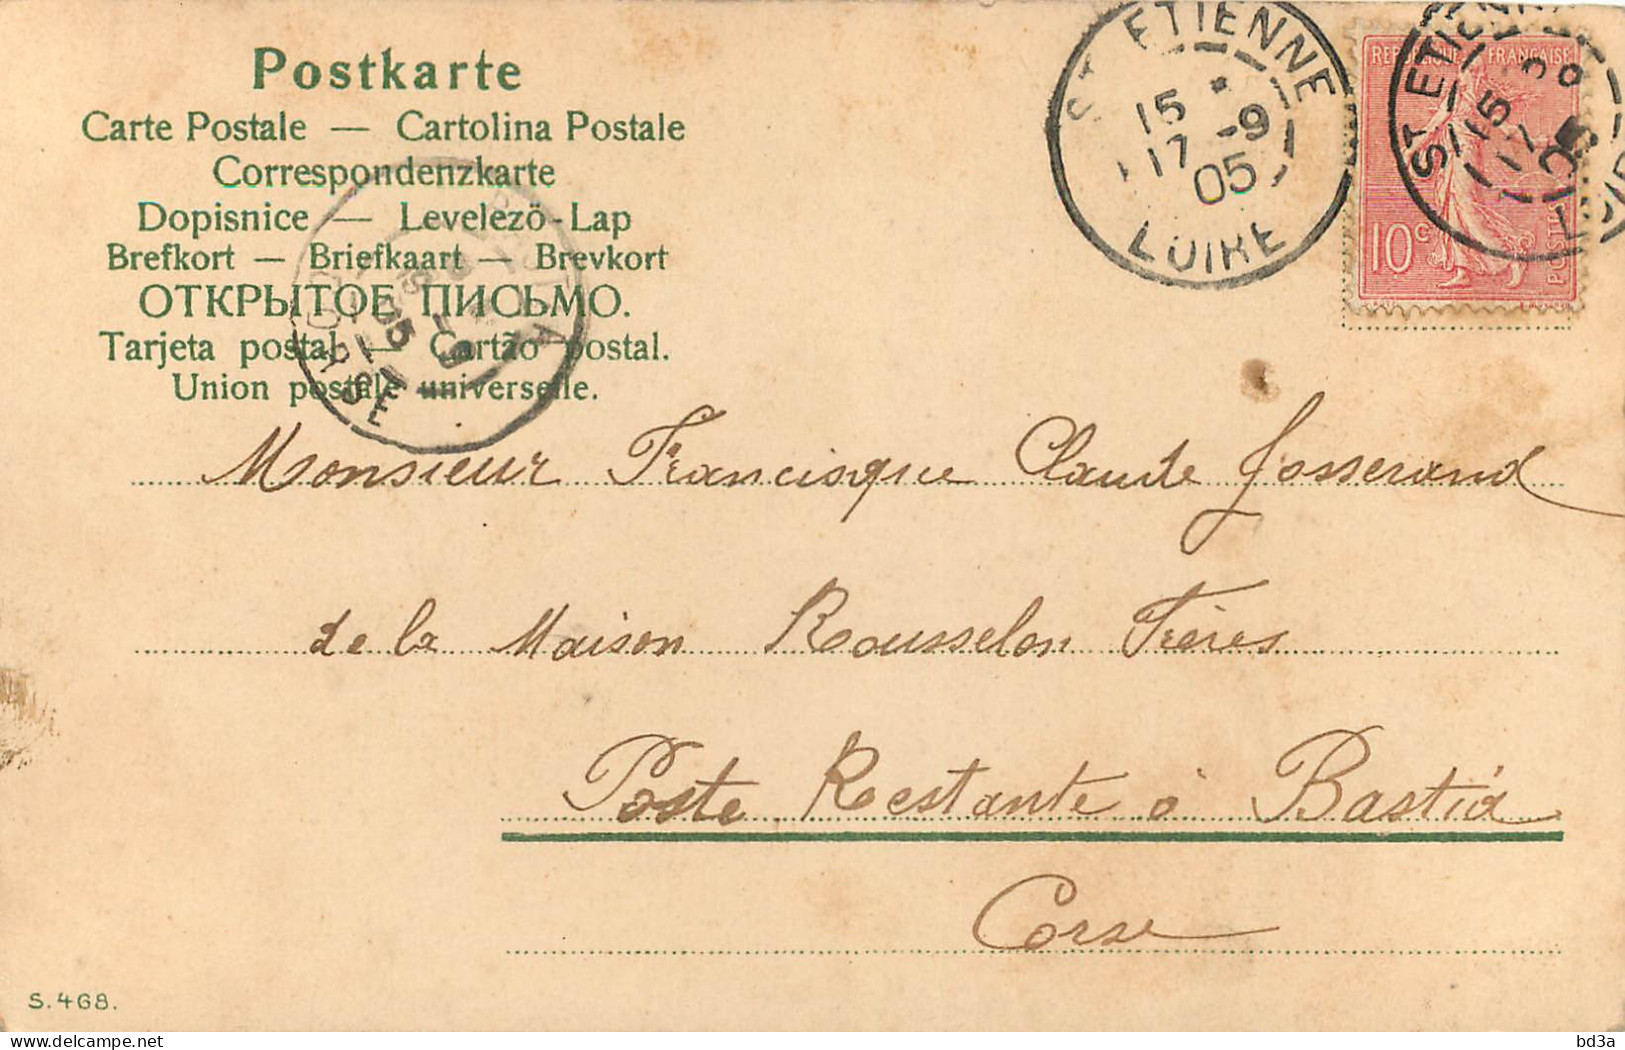 Postkarte
Carte Postale — Cartolina Postale
Correspondenzkarte
Dopisnice — Levelezö-Lap
Brefkort — Briefkaart — Brevkort
ОТКРЫТОЕ ПИСЬМО.
Tarjeta postal — Cartão postal.
Union postale universelle.
ST ETIENNE
15 *
17 -9
05
LOIRE
REPUBLIQUE FRANÇAISE
10c
POSTES
ST ETIENNE
15
17
05
LOIRE
CORSE
Monsieur Francisque Claude Josserand
de la Maison Rousselon Frères
Poste Restante à Bastia
Corse
S.468.
delcampe.net
bd3a